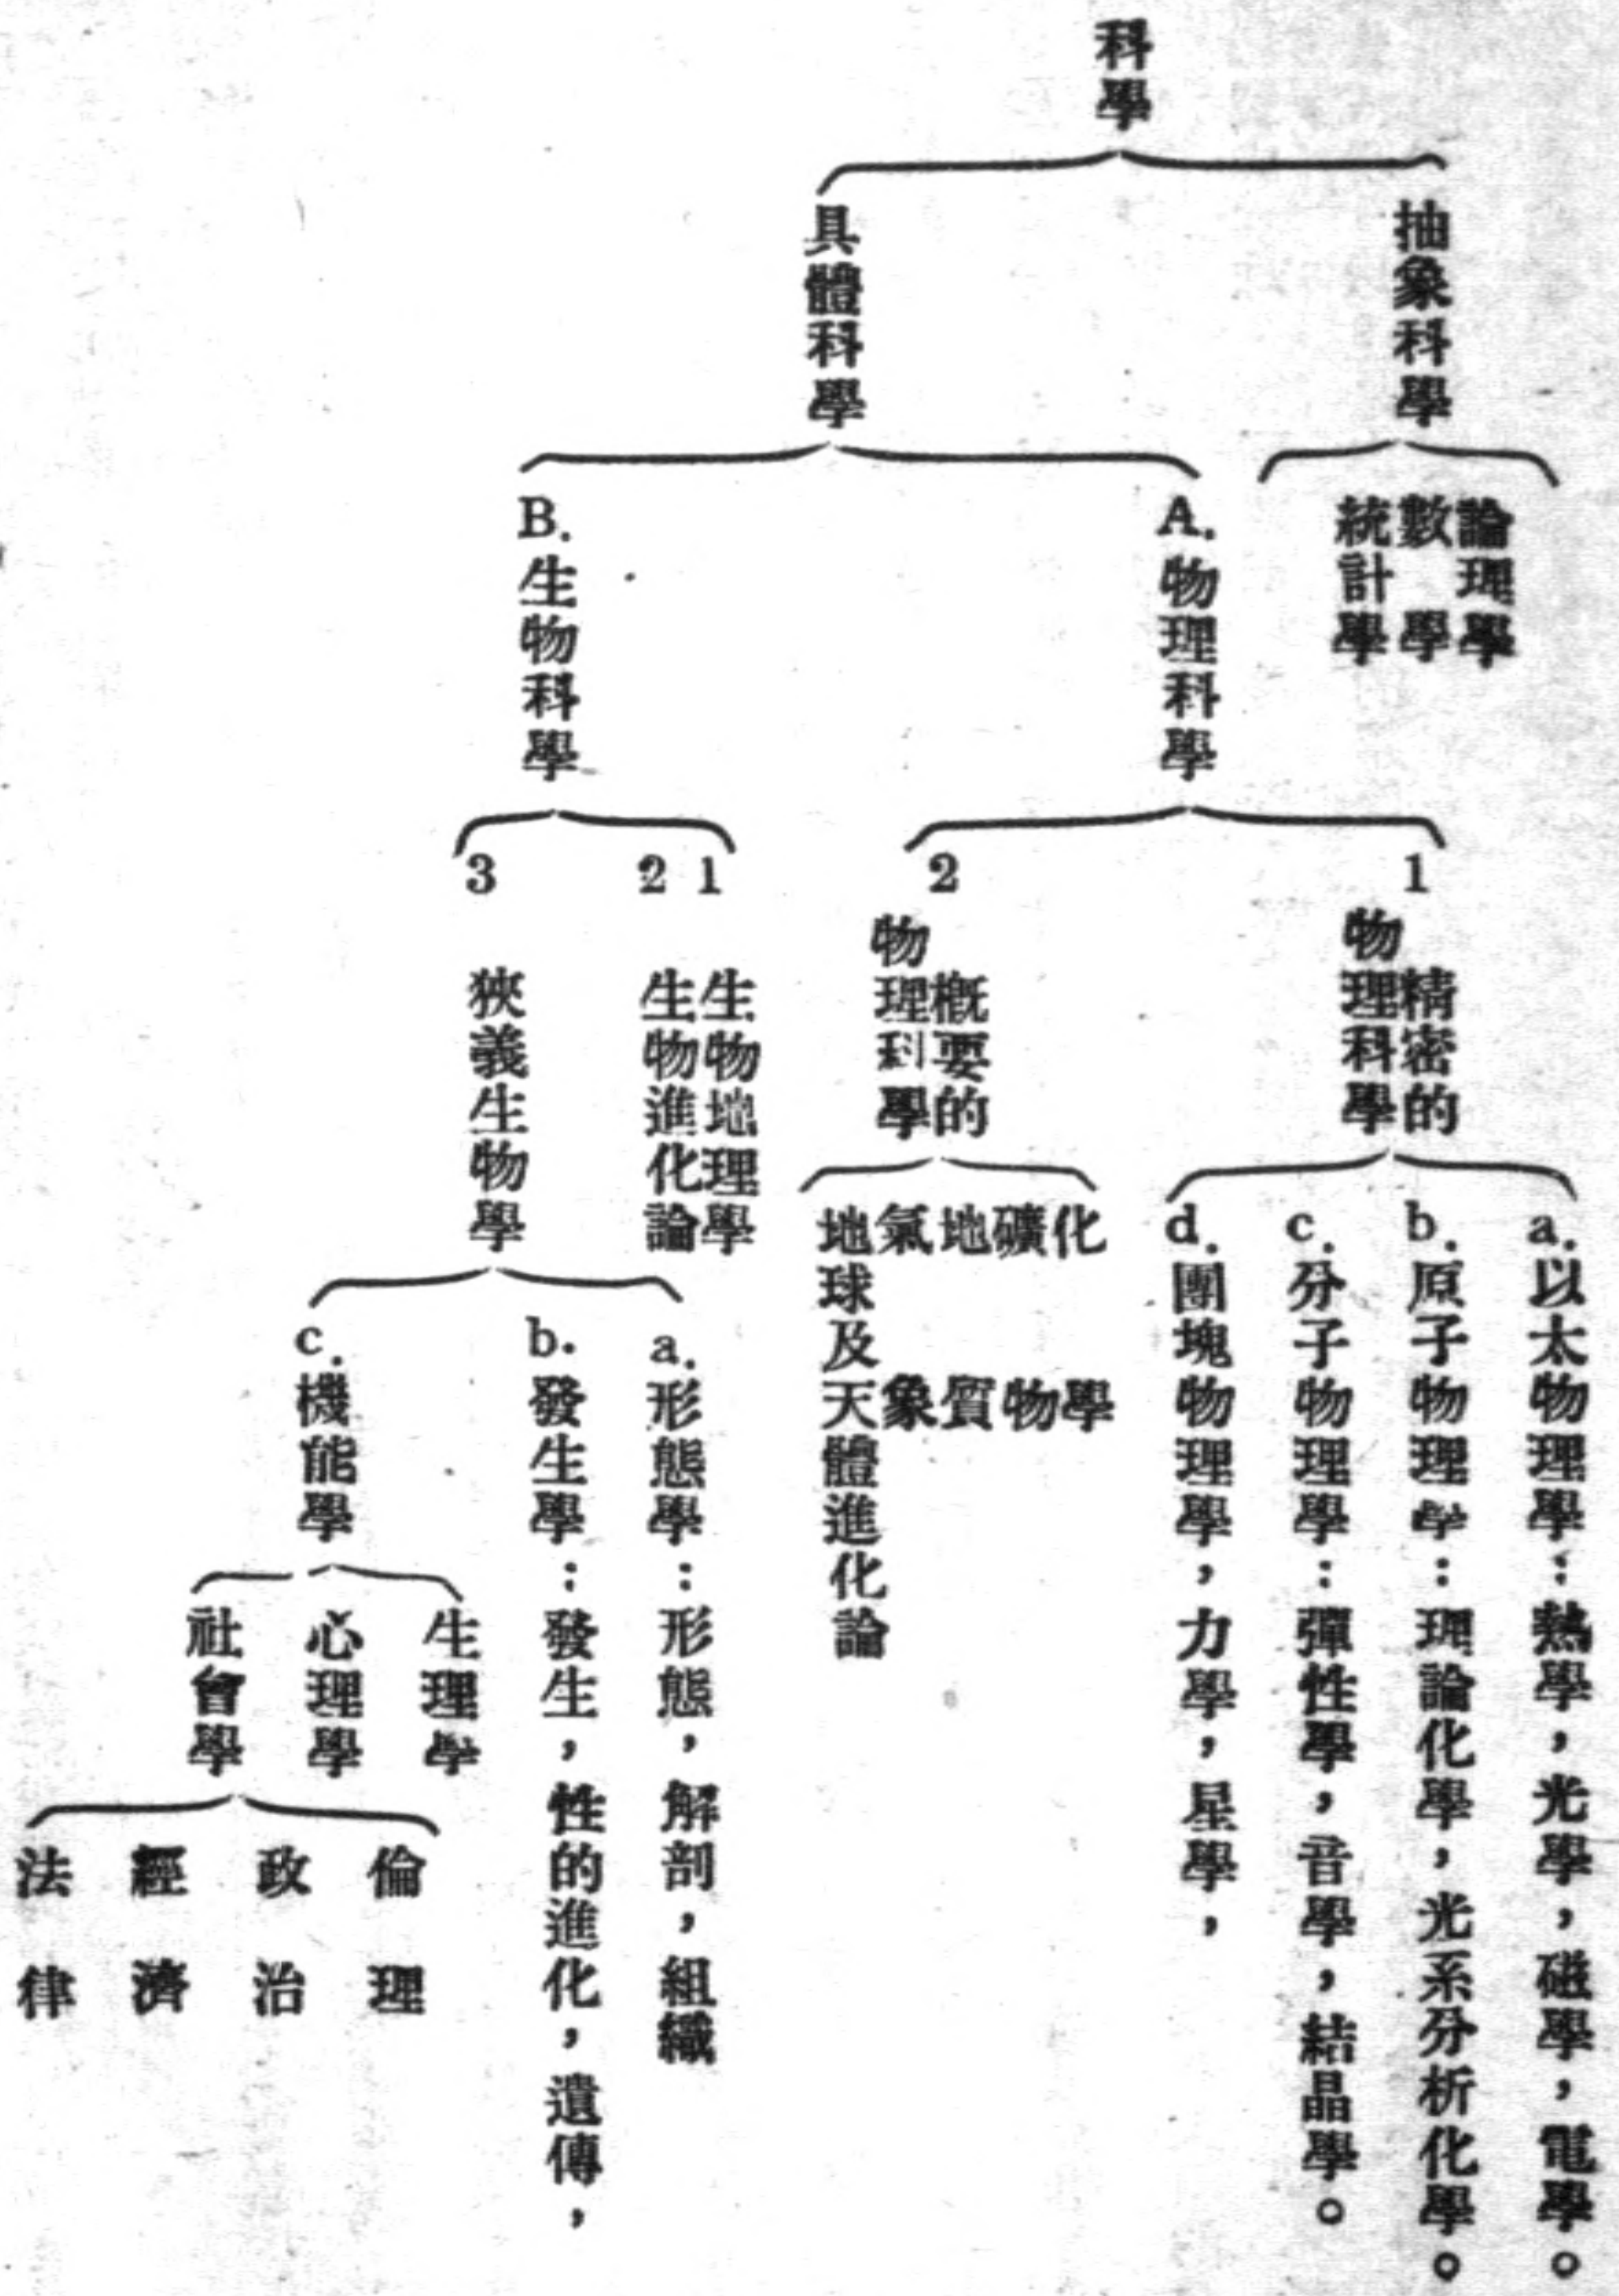 科學
抽象科學
論理學
數學
統計學
具體科學
A.物理科學
1
精密的
物理科學
a.以太物理學：熱學，光學，磁學，電學。
b.原子物理學：理論化學，光系分析化學。
c.分子物理學：彈性學，音學，結晶學。
d.團塊物理學，力學，星學，
2
概要的
物理科學
化學
礦物
地質
氣象
地球及天體進化論
B.生物科學
1
生物地理學
2
生物進化論
3
狹義生物學
a.形態學：形態，解剖，組織
b.發生學：發生，性的進化，遺傳，
c.機能學
生理學
心理學
社會學
倫理
政治
經濟
法律